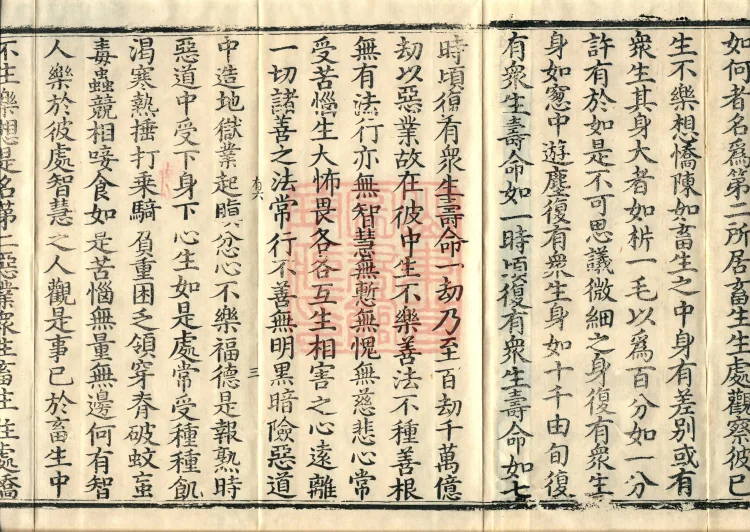 如何者名爲第二所居畜生生處觀察彼已
生不樂想憍陳如畜生之中身有差別或有
衆生其身大者如析一毛以爲百分如一分
許有於如是不可思議微細之身復有衆生
身如窓中遊塵復有衆生身如十千由旬復
有衆生壽命如一時頃復有衆生壽命如七
時頃復有衆生壽命一劫乃至百劫千萬億
劫以惡業故在彼中生不樂善法不種善根
無有法行亦無智慧無慙無愧無慈悲心常
受苦惱生大怖畏各各互生相害之心遠離
一切諸善之法常行不善無明黑暗險惡道
中造地獄業起瞋忿心不樂福德是報熟時
惡道中受下身下心生如是處常受種種飢
渴寒熱捶打乘騎負重困乏領穿脊破蚊䖟
毒蟲競相唼食如是苦惱無量無邊何有智
人樂於彼處智慧之人觀是事已於畜生中
不生樂想是名第二惡業衆生畜生生處憍
三